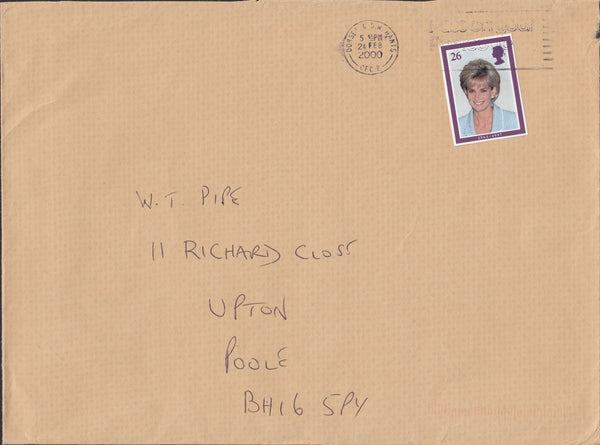 DORSET & S.W. HANTS
5 15PM
24 FEB
2000
26
1961-1997
W.T. PIPE
11 RICHARD CLOSE
UPTON
POOLE
BH16 5PY